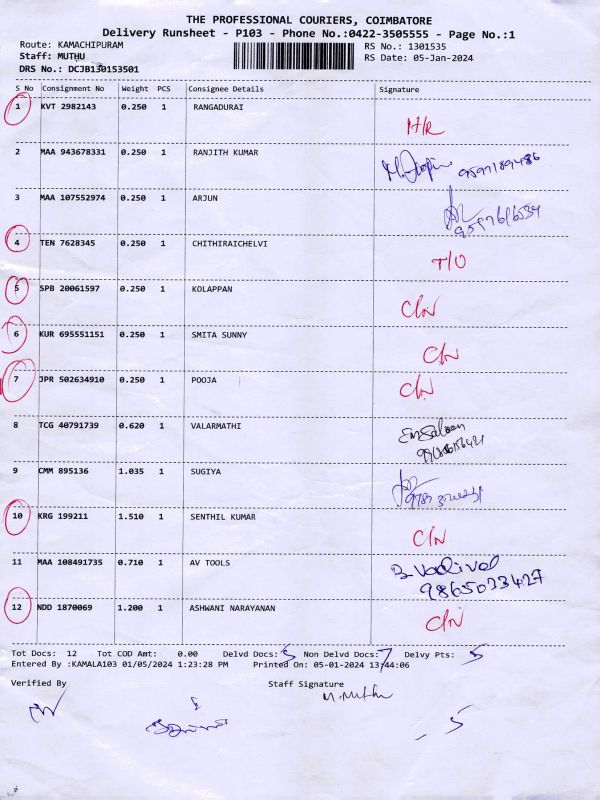 THE PROFESSIONAL COURIERS, COIMBATORE
Delivery Runsheet - P103 - Phone No.:0422-3505555 - Page No.:1
Route: KAMACHIPURAM RS No.: 1301535
Staff: MUTHU RS Date: 05-Jan-2024
DRS No.: DCJB130153501
S No Consignment No Weight PCS Consignee Details Signature
1 KVT 2982143 0.250 1 RANGADURAI
H/R
2 MAA 943678331 0.250 1 RANJITH KUMAR
3 MAA 107552974 0.250 1 ARJUN
4 TEN 7628345 0.250 1 CHITHIRAICHELVI
T/O
5 SPB 20061597 0.250 1 KOLAPPAN
C/N
6 KUR 695551151 0.250 1 SMITA SUNNY
C/N
7 JPR 502634910 0.250 1 POOJA C/N
8 TCG 40791739 0.620 1 VALARMATHI
9 CMM 895136 1.035 1 SUGIYA
10 KRG 199211 1.510 1 SENTHIL KUMAR
C/N
11 MAA 108491735 0.710 1 AV TOOLS B. Vadivel
9865033427
12 NDD 1870069 1.200 1 ASHWANI NARAYANAN C/N
Tot Docs: 12 Tot COD Amt: 0.00 Delvd Docs: 5 Non Delvd Docs: 7 Delvy Pts: 5
Entered By :KAMALA103 01/05/2024 1:23:28 PM Printed On: 05-01-2024 13:44:06
Verified By Staff Signature
M. Muthu
- 5